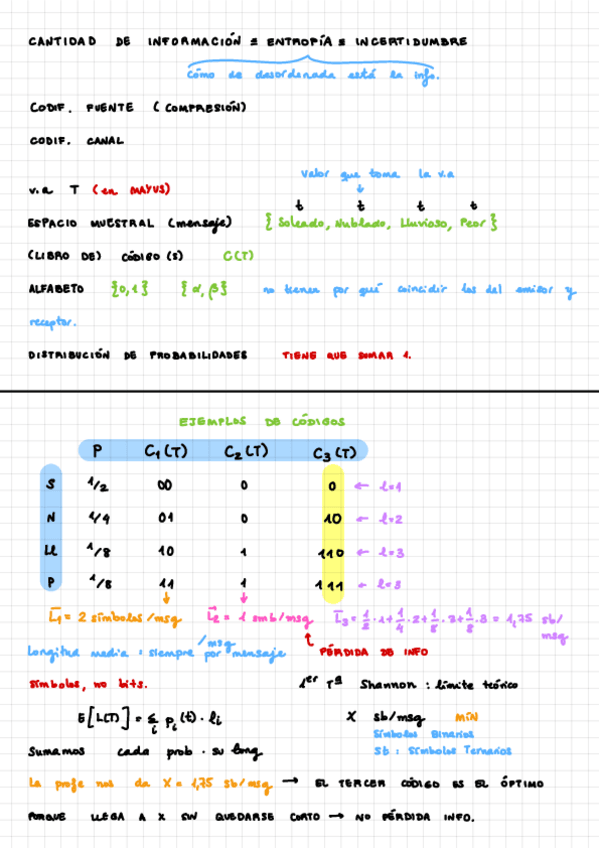 CANTIDAD DE INFORMACIÓN ≡ ENTROPÍA ≡ INCERTIDUMBRE
cómo de desordenada está la info.
CODIF. FUENTE (COMPRESIÓN)
CODIF. CANAL
valor que toma la v.a
v.a T (en MAYUS)
t t t t
ESPACIO MUESTRAL (mensaje) {Soleado, Nublado, Lluvioso, Peor}
(LIBRO DE) CÓDIGO(S) C(T)
ALFABETO {0,1} {α,β} no tienen por qué coincidir los del emisor y
receptor.
DISTRIBUCIÓN DE PROBABILIDADES TIENE QUE SUMAR 1.
EJEMPLOS DE CÓDIGOS
P C₁(T) C₂(T) C₃(T)
S 1/2 00 0 0 ← l=1
N 1/4 01 0 10 ← l=2
Ll 1/8 10 1 110 ← l=3
P 1/8 11 1 111 ← l=3
L̄₁ = 2 símbolos/msg L̄₂ = 1 smb/msg L̄₃ = 1/2·1+1/4·2+1/8·3+1/8·3 = 1,75 sb/
msg
Longitud media: siempre por mensaje /msg PÉRDIDA DE INFO
símbolos, no bits. 1er Tª Shannon: límite teórico
E[L(T)] = Σᵢ pᵢ(t)·lᵢ X sb/msg MÍN
Símbolos Binarios
Sumamos cada prob · su long sb: Símbolos Ternarios
La profe nos da X = 1,75 sb/msg → EL TERCER CÓDIGO ES EL ÓPTIMO
PORQUE LLEGA A X SIN QUEDARSE CORTO → NO PÉRDIDA INFO.